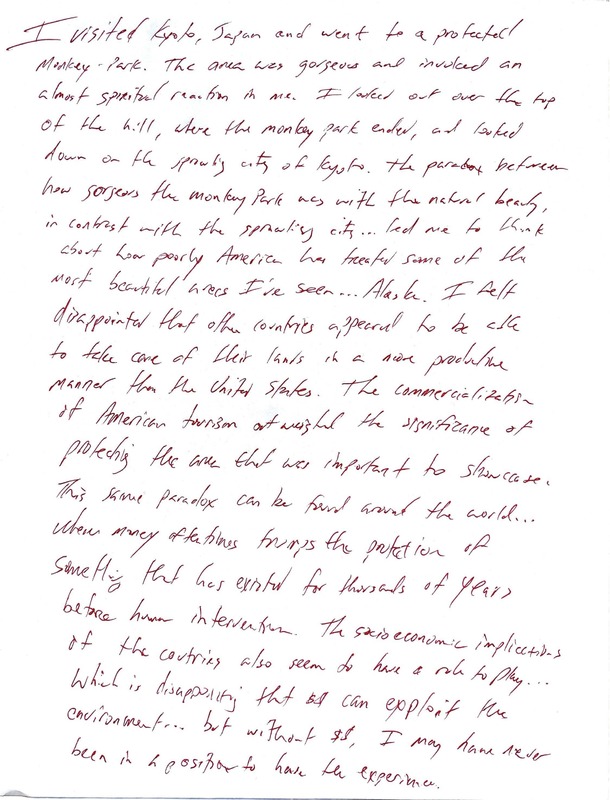 I visited Kyoto, Japan and went to a protected
Monkey-Park. The area was gorgeous and invoked an
almost spiritual reaction in me. I looked out over the top
of the hill, where the monkey park ended, and looked
down on the sprawling city of Kyoto. The paradox between
how gorgeous the monkey Park was with the natural beauty,
in contrast with the sprawling city... led me to think
about how poorly American has treated some of the
most beautiful areas I've seen... Alaska. I felt
disappointed that other countries appeared to be able
to take care of their lands in a more productive
manner than the United States. The commercialization
of American tourism outweighed the significance of
protecting the area that was important to showcase.
This same paradox can be found around the world...
where money oftentimes trumps the protection of
something that has existed for thousands of years
before human intervention. The socioeconomic implications
of the coutries also seem to have a role to play...
Which is disappointing that $$ can exploit the
environment... but without $$, I may have never
been in a position to have the experience.